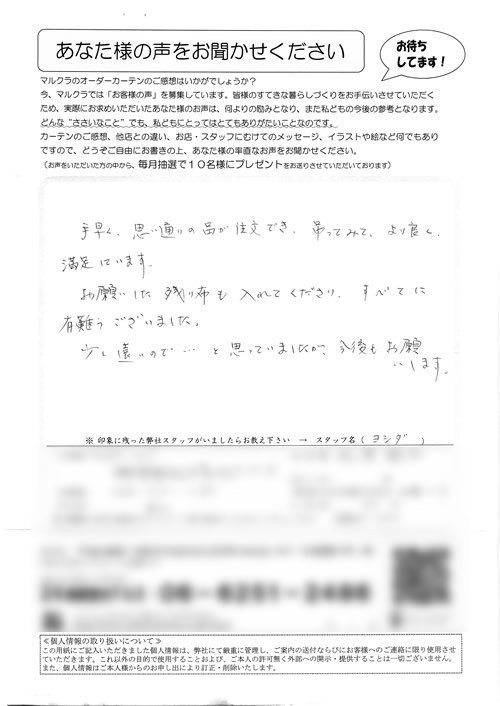 あなた様の声をお聞かせください
お待ち
してます!
マルクラのオーダーカーテンのご感想はいかがでしょうか?
今、マルクラでは「お客様の声」を募集しています。皆様のすてきな暮らしづくりをお手伝いさせていただく
ため、実際にお求めいただいたあなた様のお声は、何よりの励みとなり、また私どもの今後の参考となります。
どんな“ささいなこと”でも、私どもにとってはとてもありがたいことなのです。
カーテンのご感想、他店との違い、お店・スタッフにむけてのメッセージ、イラストや絵など何でもあり
ですので、どうぞご自由にお書きの上、あなた様の率直なお声をお聞かせください。
(お声をいただいた方の中から、毎月抽選で10名様にプレゼントをお送りさせていただいております)
手早く、思い通りの品が注文でき、吊ってみて、より良く、
満足しています。
お願いした残り布も入れてくださり、すべてに
有難うございました。
少し遠いので…と思っていましたが、今後もお願
いします。
※ 印象に残った弊社スタッフがいましたらお教え下さい → スタッフ名 ( ヨシダ )
≪個人情報の取り扱いについて≫
この用紙にご記入いただきました個人情報は、弊社にて厳重に管理し、ご案内の送付ならびにお客様へのご連絡に限り使用させ
ていただきます。これ以外の目的で使用することおよび、ご本人の許可無く外部への開示・提供することは一切ございません。
また、個人情報はご本人様からのお申し出により訂正・削除いたします。